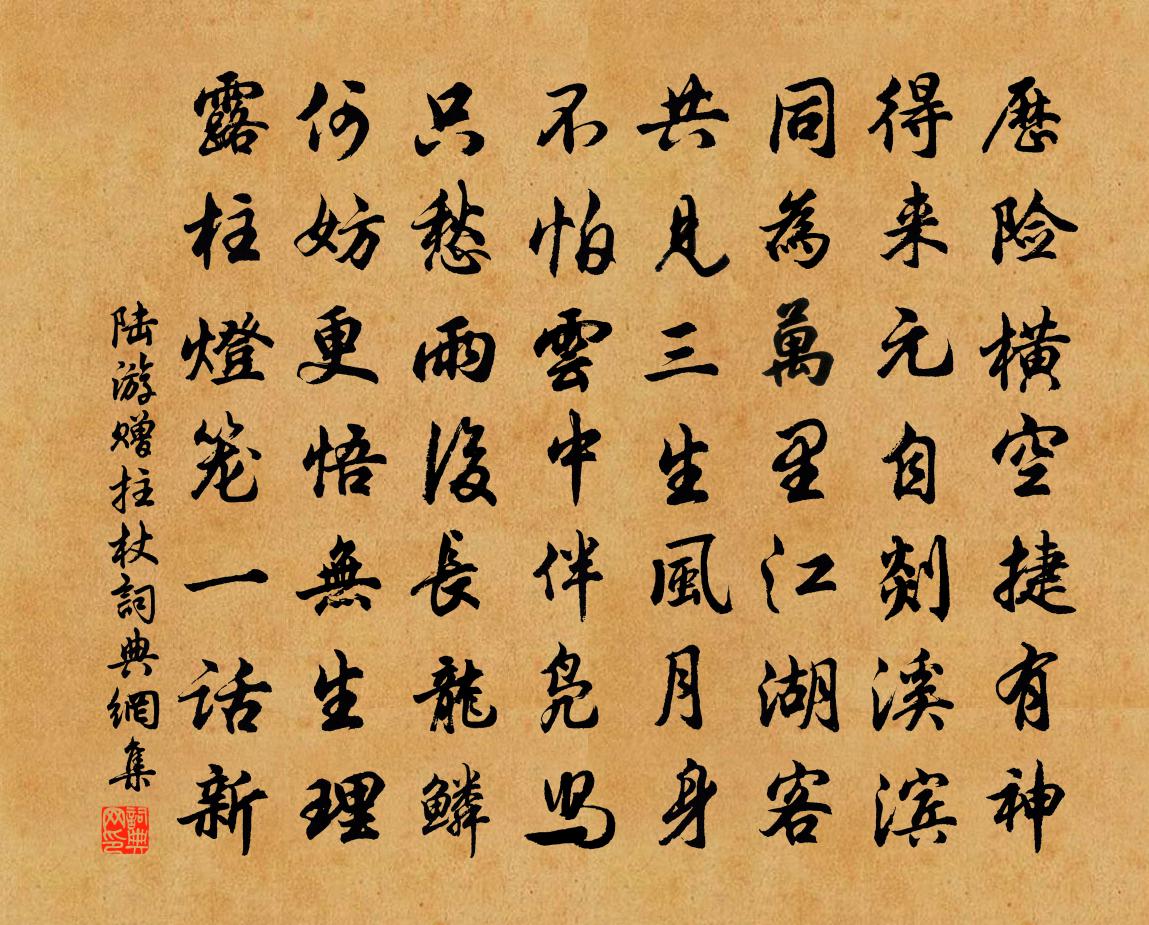 歷险橫空捷有神
得来元自剡溪滨
同為萬里江湖客
共見三生風月身
不怕雲中伴凫舄
只愁雨後長龍鱗
何妨更悟無生理
露柱燈笼一话新
陆游赠拄杖詞典網集
詞典
网印